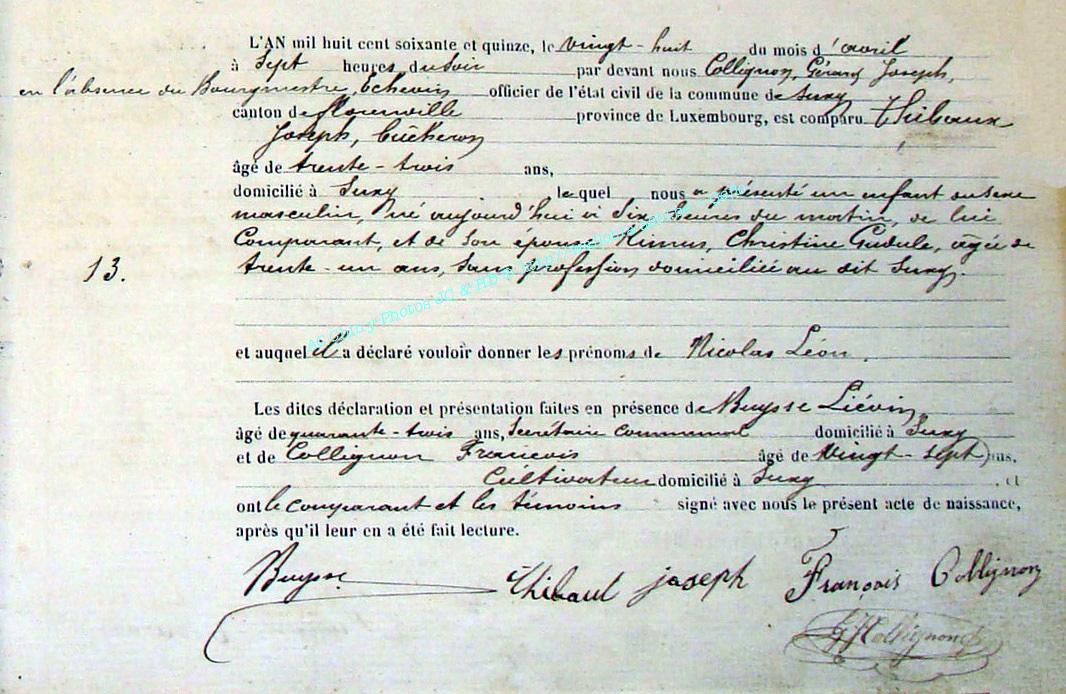 L'AN mil huit cent soixante et quinze, le vingt-huit du mois d'avril
à Sept heures du Soir par devant nous Collignon, Gérard Joseph,
en l'absence du Bourgmestre, Echevin officier de l'état civil de la commune de Suxy
canton de Florenville province de Luxembourg, est comparu Thibeaux
Joseph, bûcheron
âgé de trente-trois ans,
domicilié à Suxy lequel nous a présenté un enfant du sexe
masculin, né aujourd'hui à Six heures du matin, de lui
Comparant, et de son épouse Christine Gudule, âgée de
13. trente-un ans, sans profession domiciliée au dit Suxy.
et auquel il a déclaré vouloir donner les prénoms de Nicolas Léon.
Les dites déclaration et présentation faites en présence de Buysse Liévin
âgé de quarante-trois ans, Secrétaire communal domicilié à Suxy
et de Collignon Francois âgé de Vingt-sept ans,
Cultivateur domicilié à Suxy et
ont le comparant et les témoins signé avec nous le présent acte de naissance,
après qu'il leur en a été fait lecture.
Buysse Thibaut joseph François Collignon
GJCollignon